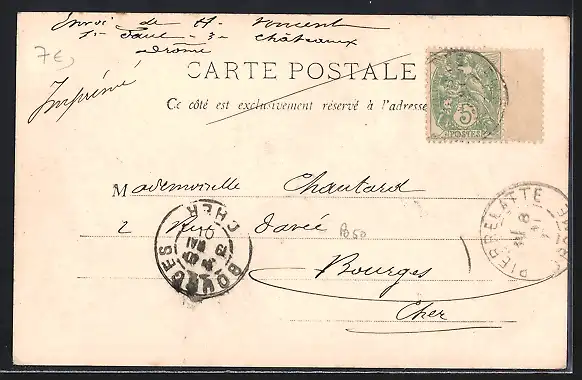 Envoi de H. Vincent
St Paul - 3 - Châteaux
Drôme
7€
Imprimé
CARTE POSTALE
Ce côté est exclusivement réservé à l'adresse
5
POSTES
Mademoiselle Chautard
2 Rue Davié
P050
Bourges
Cher
BOURGES
CHER
MAI
PIERRELATTE
DROME
8